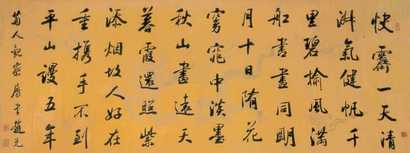 快霽一天清
淑氣健帆千
里碧榆風滿
船書畫同明
月十日隋花
窮窕中淡墨
秋山畫遠天
暮霞還照紫
添烟故人好在
重攜手不到
平山謾五年